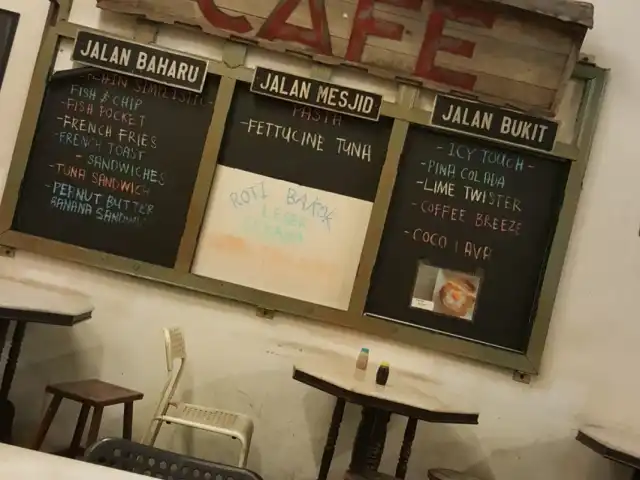 CAFE
JALAN BAHARU
FISH & CHIP
-FISH POCKET
-FRENCH FRIES
-FRENCH TOAST
- SANDWICHES
-TUNA SANDWICH
-PEANUT BUTTER
BANANA SANDWICH
JALAN MESJID
PASTA
-FETTUCINE TUNA
ROTI BAKAR
JALAN BUKIT
- ICY TOUCH -
-PINA COLADA
-LIME TWISTER
-COFFEE BREEZE
-COCO LAVA